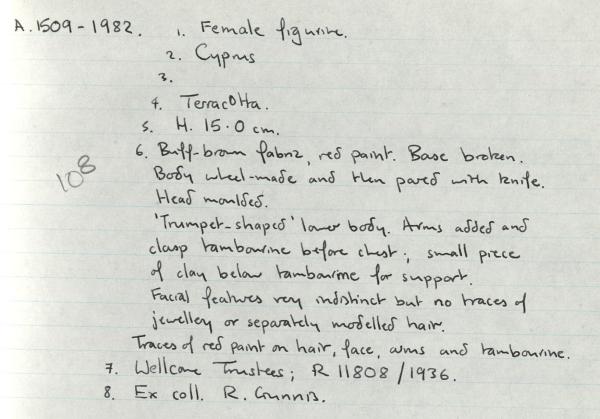 A.1509-1982. 1. Female figurine.
2. Cyprus
3.
4. Terracotta.
5. H. 15.0 cm.
6. Buff-brown fabric, red paint. Base broken.
108
Body wheel-made and then pared with knife.
Head moulded.
'Trumpet-shaped' lower body. Arms added and
clasp tambourine before chest; small piece
of clay below tambourine for support.
Facial features very indistinct but no traces of
jewellery or separately modelled hair.
Traces of red paint on hair, face, arms and tambourine.
7. Wellcome Trustees; R 11808/1936.
8. Ex coll. R. Gunnis.